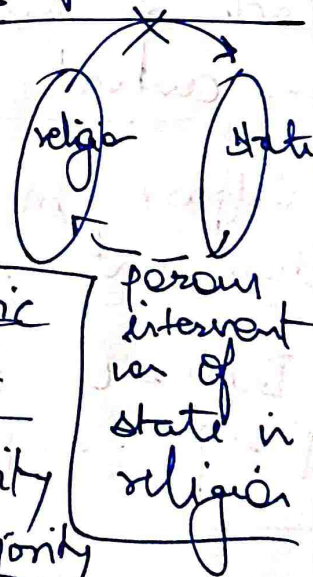 religio
state
porous
intervent
ion of
state in
religion
ic
ity
jority